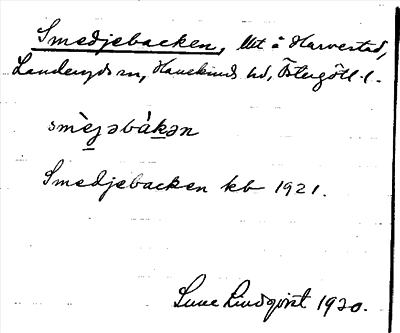 Smedjebacken, lht å Harvestad,
Landeryds sn, Hanekinds hd, Östergötl. l.
smèjəbàkən
Smedjebacken kb 1921.
Sune Lindqvist 1920.